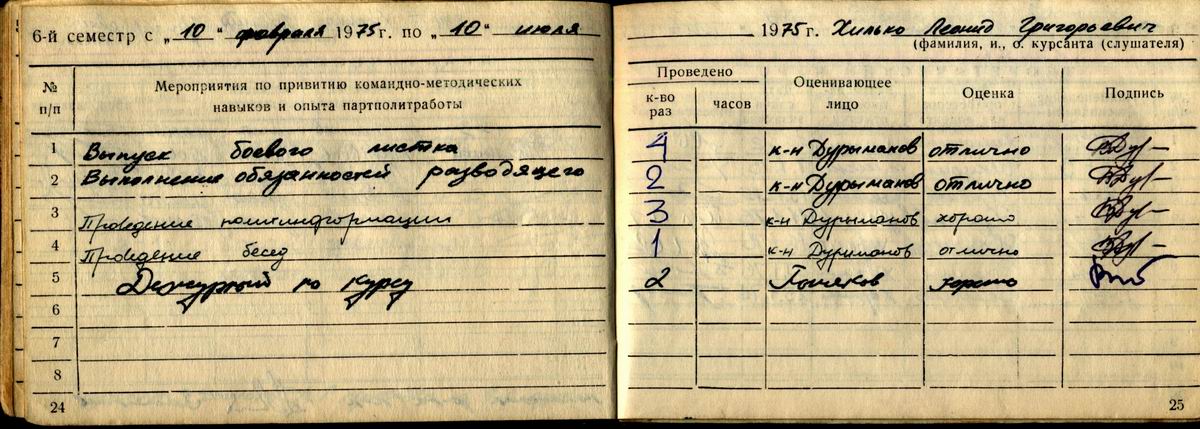 6-й семестр с „10“ февраля 1975 г. по „10“ июля 1975 г. Хилько Леонид Григорьевич
(фамилия, и., о. курсанта (слушателя)
№ п/п Мероприятия по привитию командно-методических навыков и опыта партполитработы Проведено к-во раз часов Оценивающее лицо Оценка Подпись
1 Выпуск боевого листка 4 к-н Дурыманов отлично
2 Выполнение обязанностей разводящего 2 к-н Дурыманов отлично
3 Проведение политинформации 3 к-н Дурыманов хорошо
4 Проведение бесед 1 к-н Дурыманов отлично
5 Дежурный по курсу 2 хорошо
6
7
8
24 25